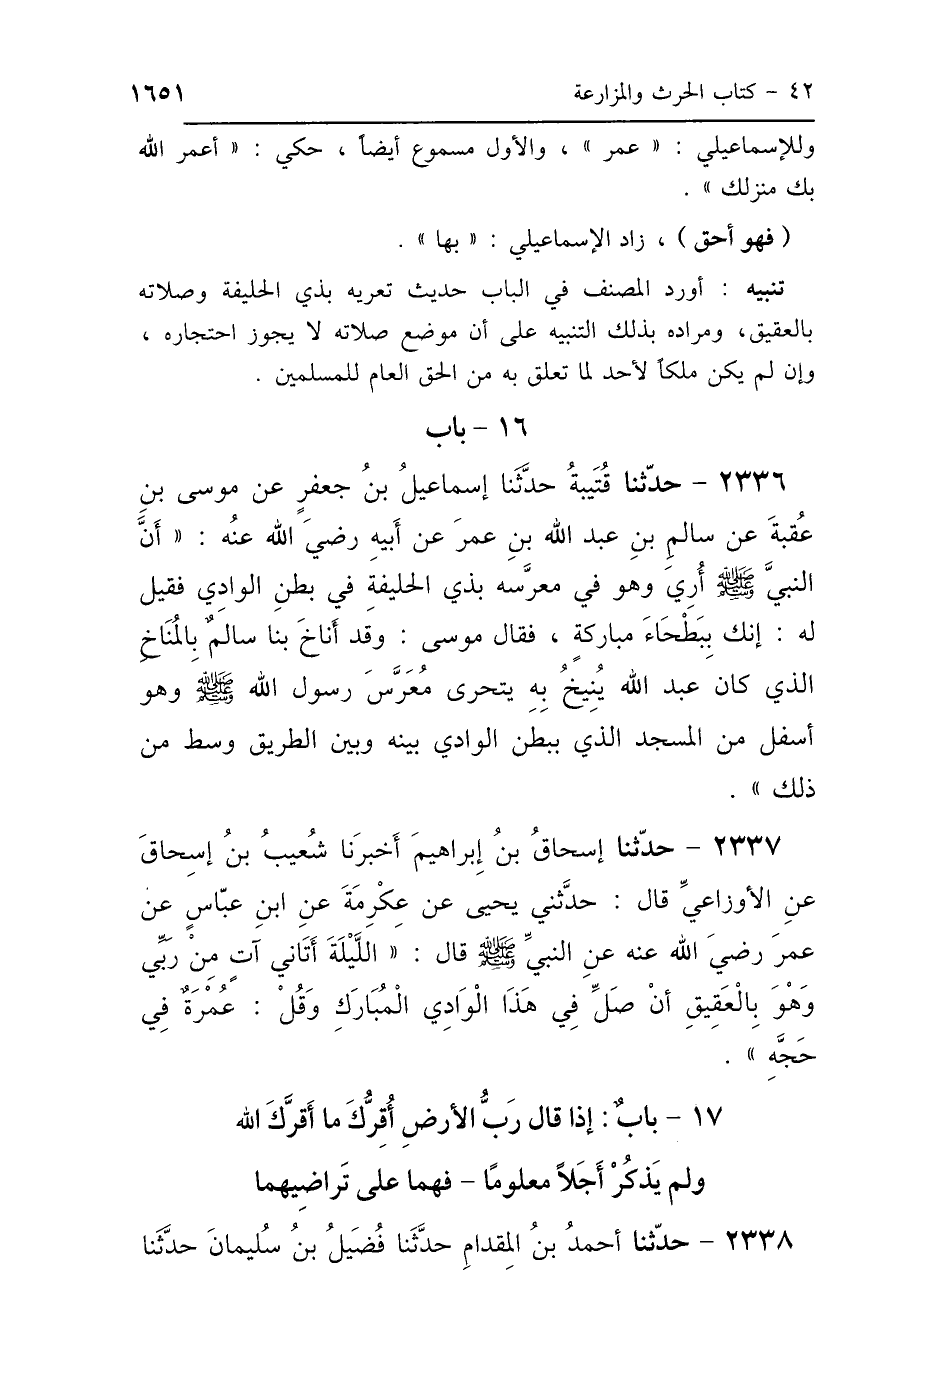 ٤٢ - كتاب الحرث والمزارعة ١٦٥١
وللإسماعيلي : « عمر » ، والأول مسموع أيضاً ، حكي : « أعمر الله
بك منزلك » .
( فهو أحق ) ، زاد الإسماعيلي : « بها » .
تنبيه : أورد المصنف في الباب حديث تعريه بذي الحليفة وصلاته
بالعقيق، ومراده بذلك التنبيه على أن موضع صلاته لا يجوز احتجاره ،
وإن لم يكن ملكاً لأحد لما تعلق به من الحق العام للمسلمين .
١٦ - باب
٢٣٣٦ - حدّثنا قُتَيبةُ حدَّثَنا إسماعيلُ بنُ جعفرٍ عن موسى بنِ
عُقبةَ عن سالمِ بنِ عبد الله بنِ عمرَ عن أَبيهِ رضيَ الله عنُه : « أنَّ
النبيَّ ﷺ أُرِيَ وهو في معرَّسه بذي الحليفةِ في بطنِ الوادِي فقيل
له : إنك بِبَطْحَاءَ مباركةٍ ، فقال موسى : وقد أَناخَ بنا سالمٌ بِالْمُنَاخِ
الذي كان عبد الله يُنِيخُ بِهِ يتحرى مُعَرَّسَ رسول الله ﷺ وهو
أسفل من المسجد الذي ببطن الوادي بينه وبين الطريق وسط من
ذلك » .
٢٣٣٧ - حدّثنا إسحاقُ بنُ إِبراهيمَ أَخبرَنا شُعيبُ بنُ إِسحاقَ
عنِ الأوزاعيِّ قال : حدَّثني يحيى عن عِكْرِمَةَ عنِ ابنِ عبّاسٍ عن
عمرَ رضيَ الله عنه عنِ النبيِّ ﷺ قال : « اللَّيْلَةَ أَتَاني آتٍ مِنْ رَبِّي
وَهْوَ بِالْعَقِيقِ أنْ صَلِّ فِي هَذَا الْوَادِي الْمُبَارَكِ وَقُلْ : عُمْرَةٌ فِي
حَجَّهِ » .
١٧ - بابٌ : إذا قال رَبُّ الأرضِ أُقِرُّكَ ما أَقرَّكَ الله
ولم يَذكُرْ أَجَلاً معلومًا - فهما على تَراضِيهما
٢٣٣٨ - حدّثنا أحمدُ بنُ المِقدامِ حدَّثَنا فُضَيلُ بنُ سُليمانَ حدَّثَنا